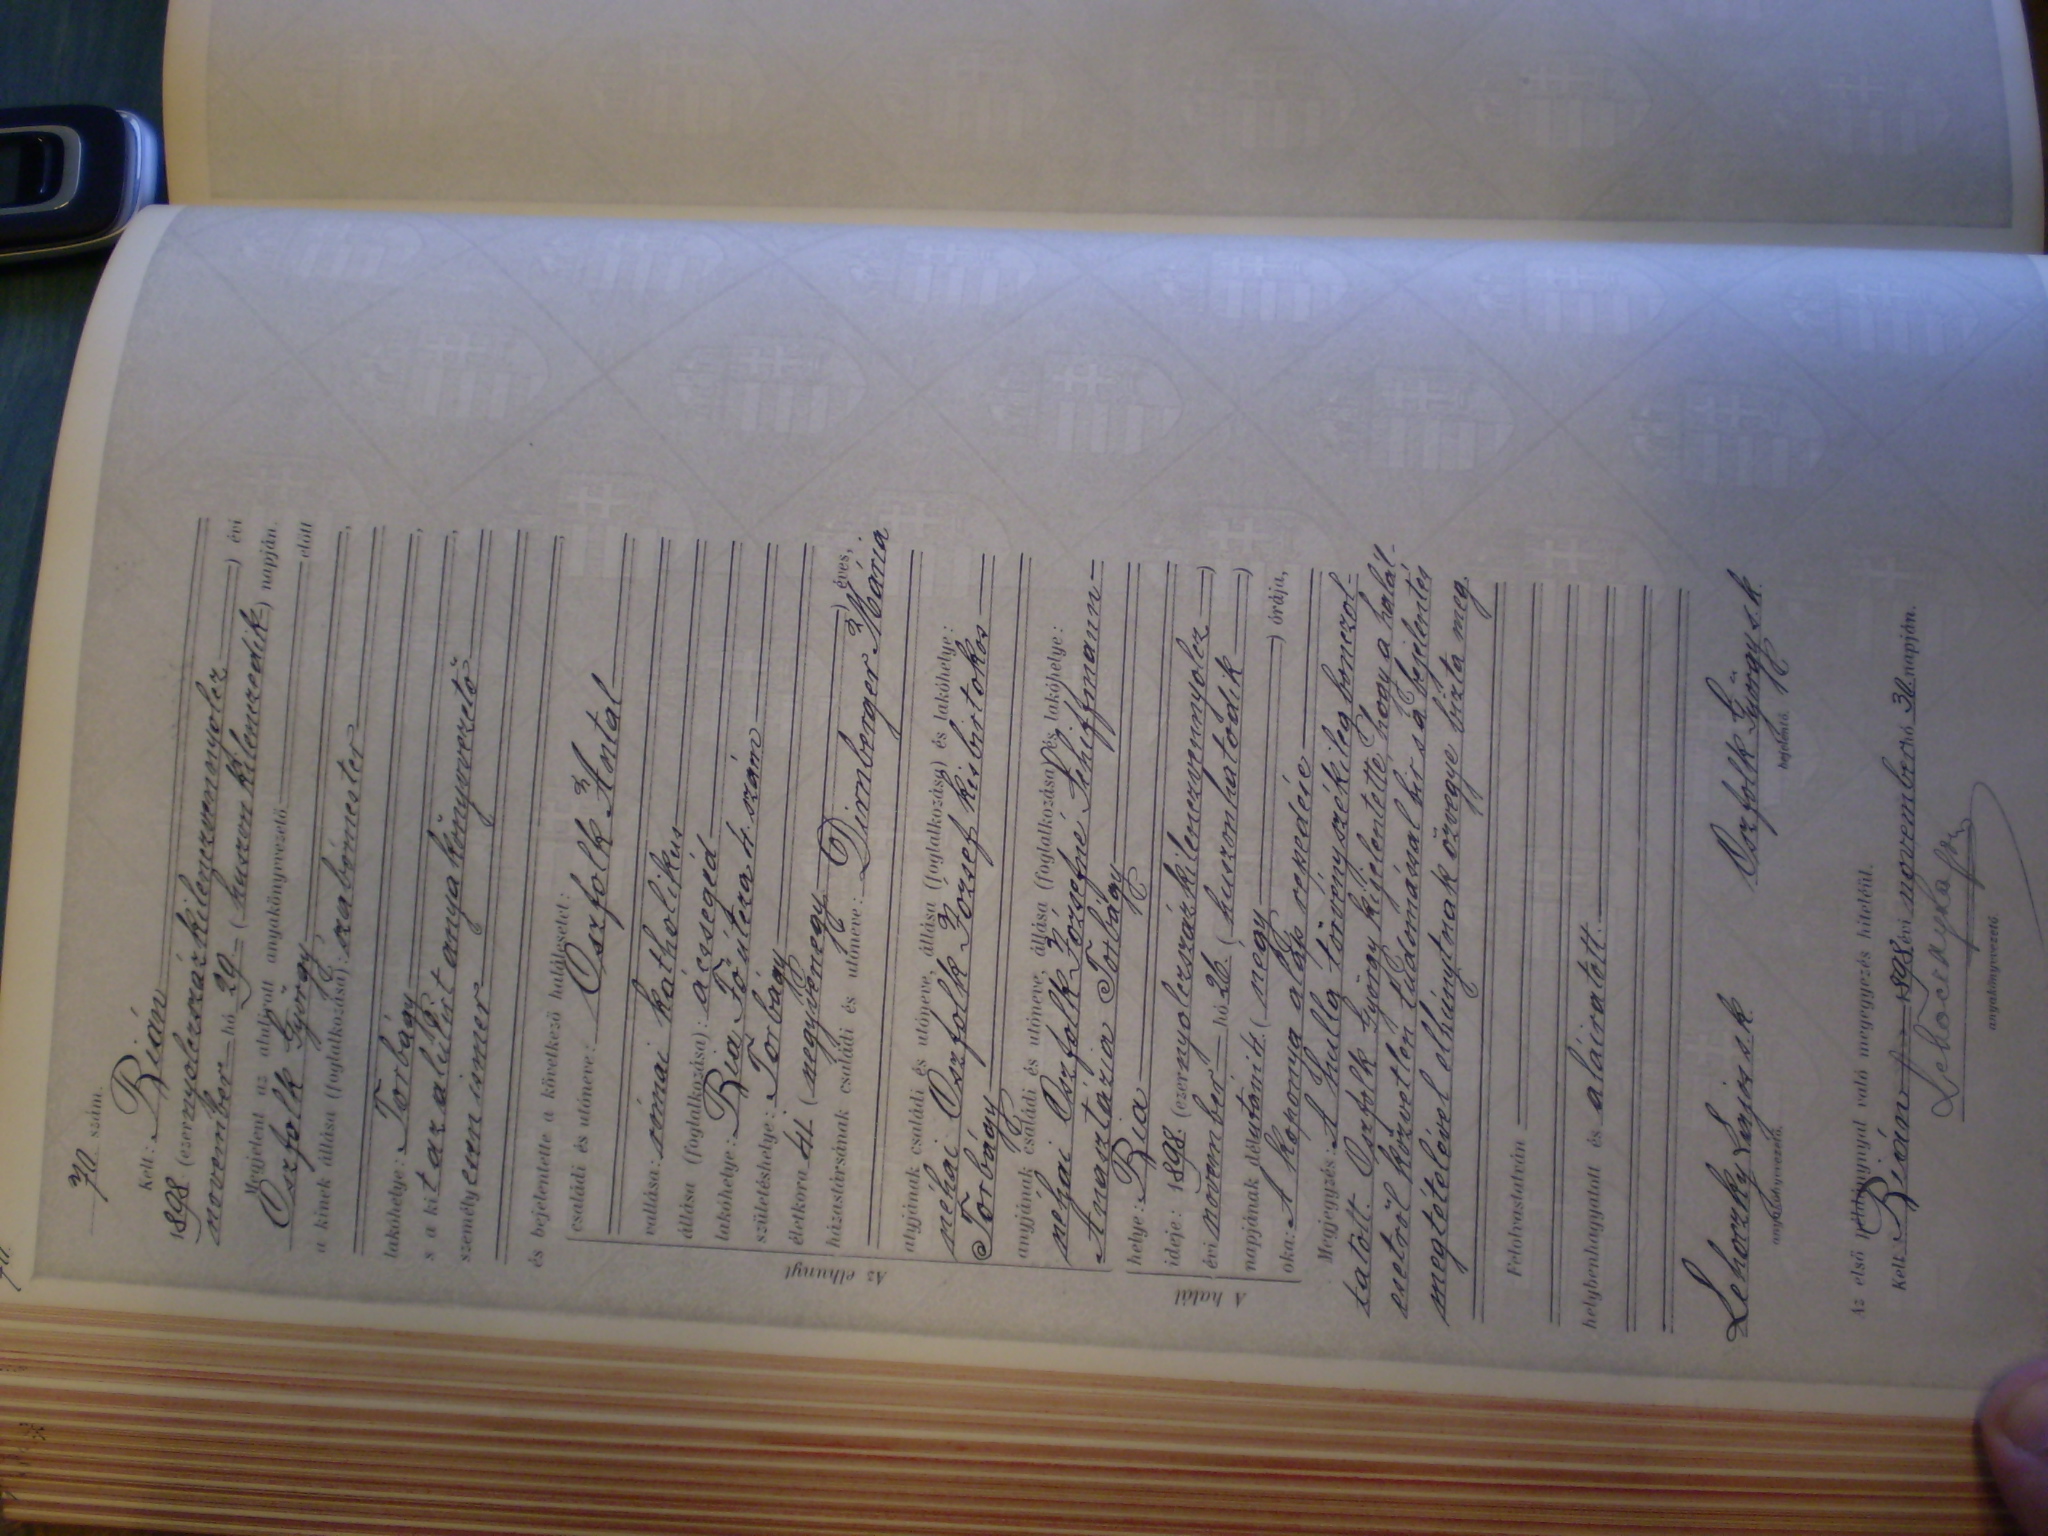 70 szám.
Kelt: Bián
1898 (ezernyolczszázkilenczvennyolcz) évi
november hó 29 (huszonkilenczedik) napján.
Megjelent az alulírott anyakönyvvezető előtt
Oszfolk György
a kinek állása (foglalkozása): szabómester,
lakóhelye: Torbágy,
s a kit az alulírt anyakönyvvezető
személyesen ismer,
és bejelentette a következő halálesetet:
Az elhunyt
családi és utóneve: Oszfolk Antal
vallása: római katholikus
állása (foglalkozása): ácssegéd
lakóhelye: Bia Fő utcza 4. szám
születéshelye: Torbágy
életkora 41 (negyvenegy) éves,
házastársának családi és utóneve: Dirnberger Mária.
atyjának családi és utóneve, állása (foglalkozása) és lakóhelye:
néhai Oszfolk József kisbirtokos
Torbágy
anyjának családi és utóneve, állása (foglalkozása) és lakóhelye:
néhai Oszfolk Józsefné Schiffmann
Anasztázia Torbágy
A halál
helye: Bia
ideje: 1898. (ezernyolczszázkilenczvennyolcz)
évi november hó 26. (huszonhatodik)
napjának délutáni 4. (négy) órája,
oka: A koponya alap repedése
Megjegyzés: A hulla törvényszékileg bonczol-
tatott. Oszfolk György kijelentette, hogy a halál-
esetről közvetlen tudomással bir s a bejelentés
megtételével elhunytnak özvegye bizta meg.
Felolvastatván
helybenhagyatott és aláiratott.
Lehoczky Lajos s.k. Oszfolk György s.k.
anyakönyvvezető. bejelentő.
Az első példánynyal való megegyezés hiteléül.
Kelt: Bián 1898 évi november hó 30. napján.
anyakönyvvezető.